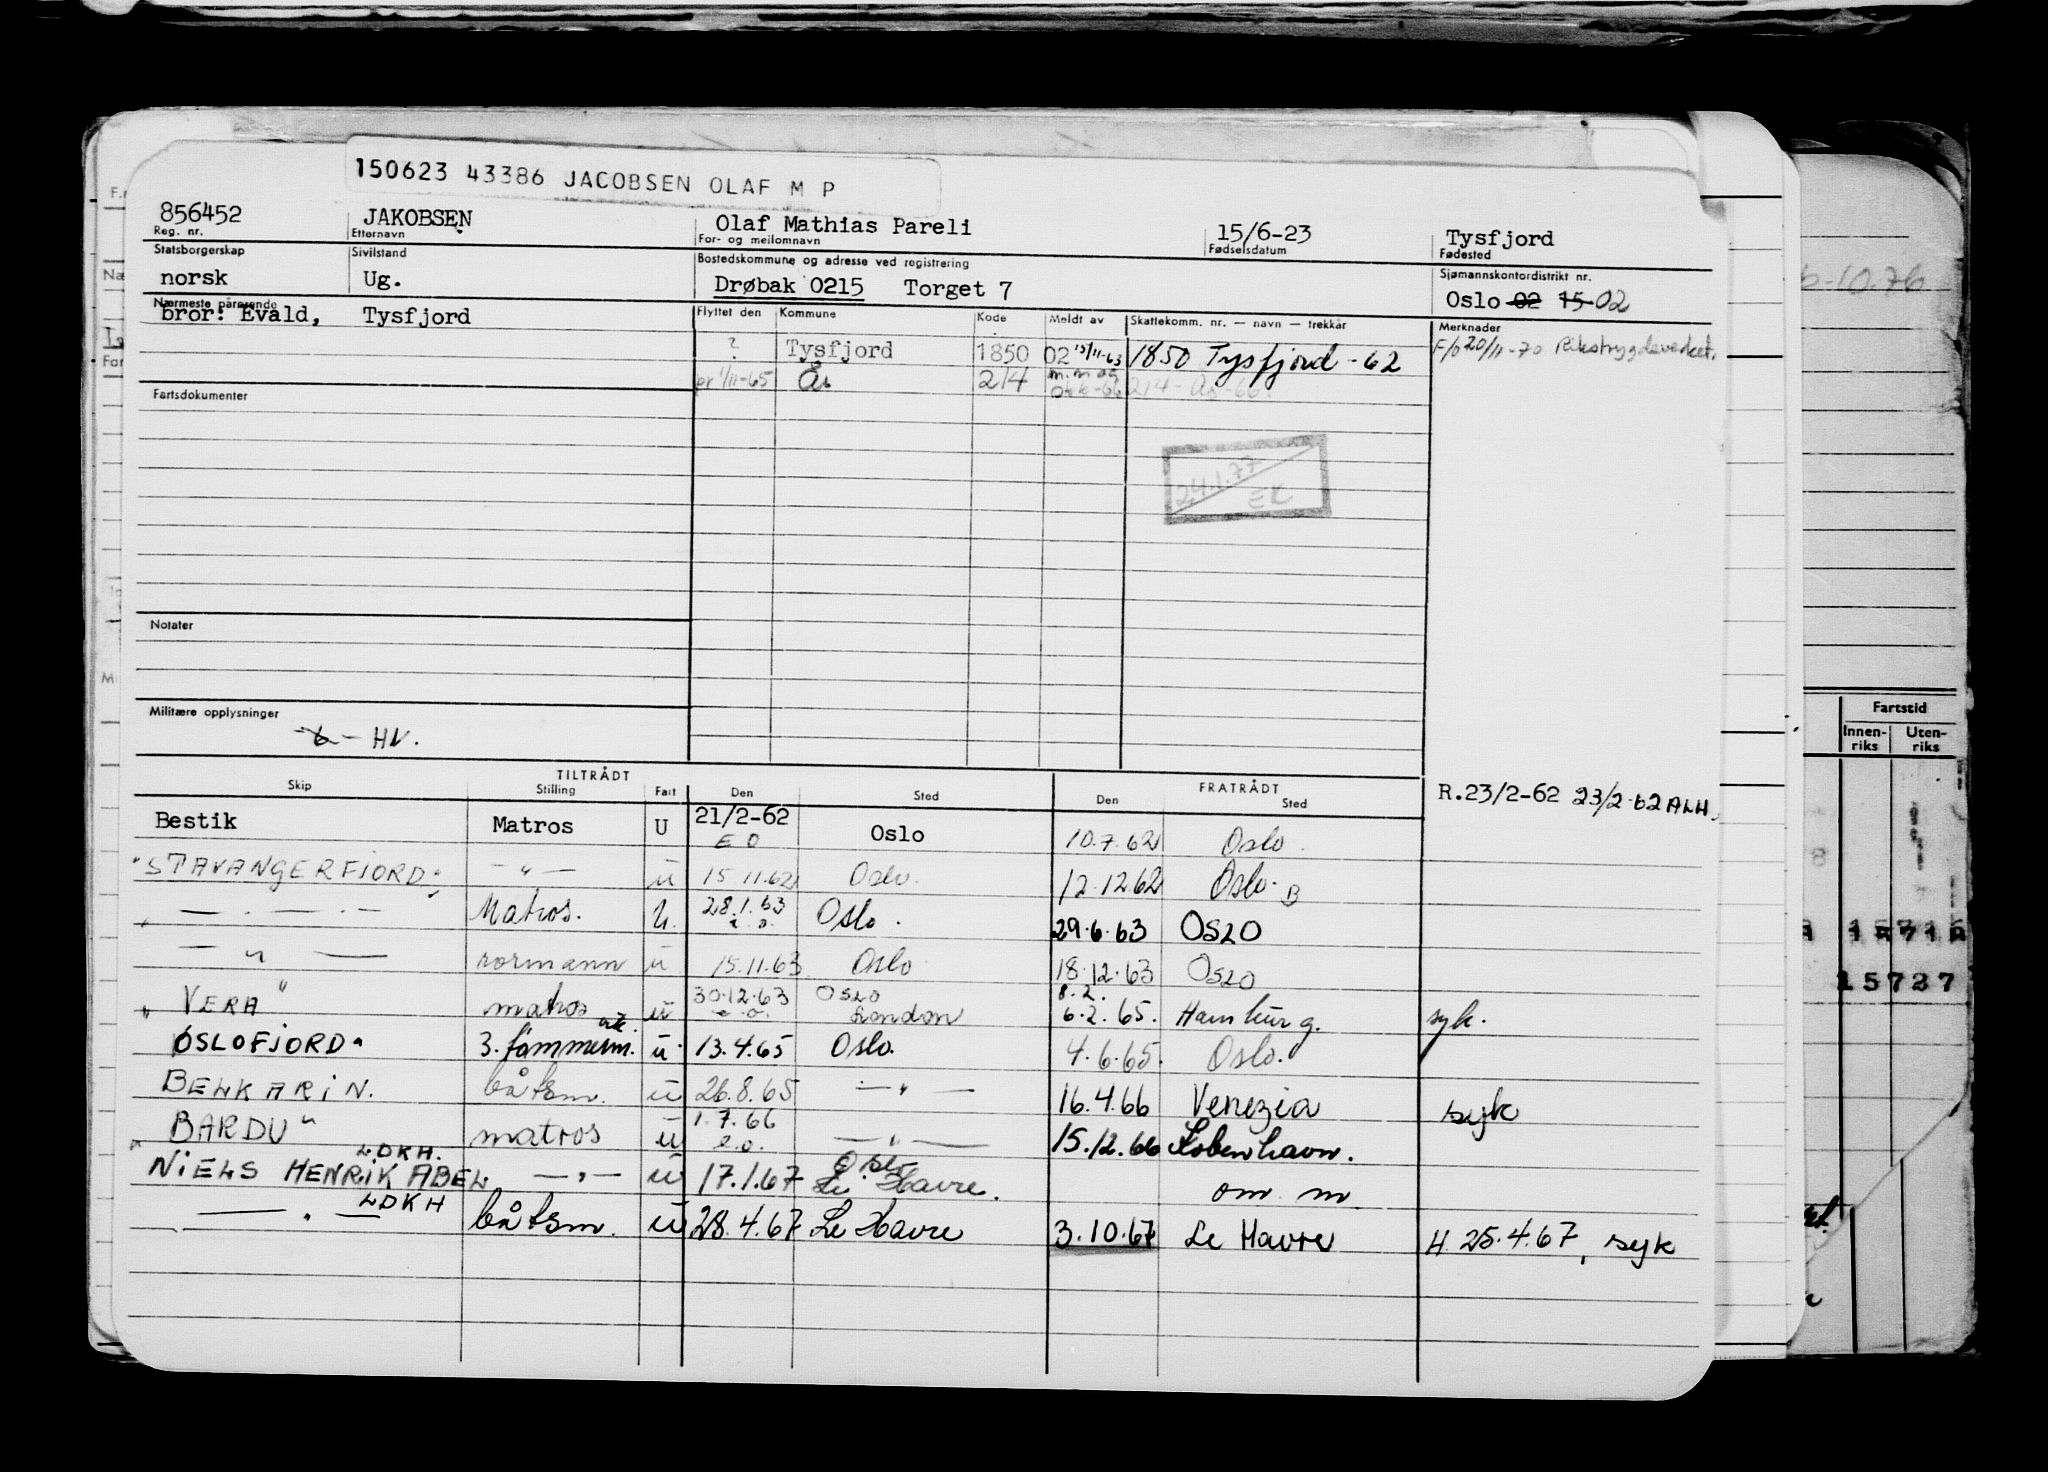 150623 43386 JACOBSEN OLAF M P
856452 JAKOBSEN Olaf Mathias Pareli 15/6-23 Tysfjord
Reg. nr. Etternavn For- og mellomnavn Fødselsdatum Fødested
Statsborgerskap Sivilstand Bostedskommune og adresse ved registrering Sjømannskontordistrikt nr.
norsk Ug. Drøbak 0215 Torget 7 Oslo 02 15 02
Nærmeste pårørende Flyttet den Kommune Kode Meldt av Skattekomm. nr. — navn — trekkår Merknader
bror: Evald, Tysfjord
? Tysfjord 1850 02 15/11-63 1850 Tysfjord - 62 F/0 20/11-70 Rikstrygdeverket.
pr 1/11-65 Ås 214 m.m og 214 - Ås - 66.
Fartsdokumenter
24.1.77
EK
Notater
Militære opplysninger
- 6 - HV.
TILTRÅDT FRATRÅDT
Skip Stilling Fart Den Sted Den Sted
R.23/2-62 23/2-62 ALH.
Bestik Matros U 21/2-62 Oslo 10.7.62 Oslo
E O
"STAVANGERFJORD" - " - u 15.11.62 Oslo. 12.12.62 Oslo. B
" — . — . — Matros. u. 28.1.63 Oslo. 29.6.63 OSLO
e.o.
— " — rormann u 15.11.63 Oslo 18.12.63 OSLO
30.12.63 OSLO 8.2.
"VERA" matros u e.o. London 6.2.65. Hamburg. syk.
OSLOFJORD" 3. tømmerm. u 13.4.65 Oslo. 4.6.65. Oslo.
BELKARIN. båtsm. u 26.8.65 — " — 16.4.66 Venezia syk
1.7.66
"BARDU" matros u e.o. — " — 15.12.66 København.
LDKH. Oslo
NIELS HENRIK ABEL — " — u 17.1.67 Le Havre. om. m
LDKH
— " — båtsm. u 28.4.67 Le Havre 3.10.67 Le Havre H. 25.4.67, syk
Fartstid
Innen-riks Uten-riks
15727